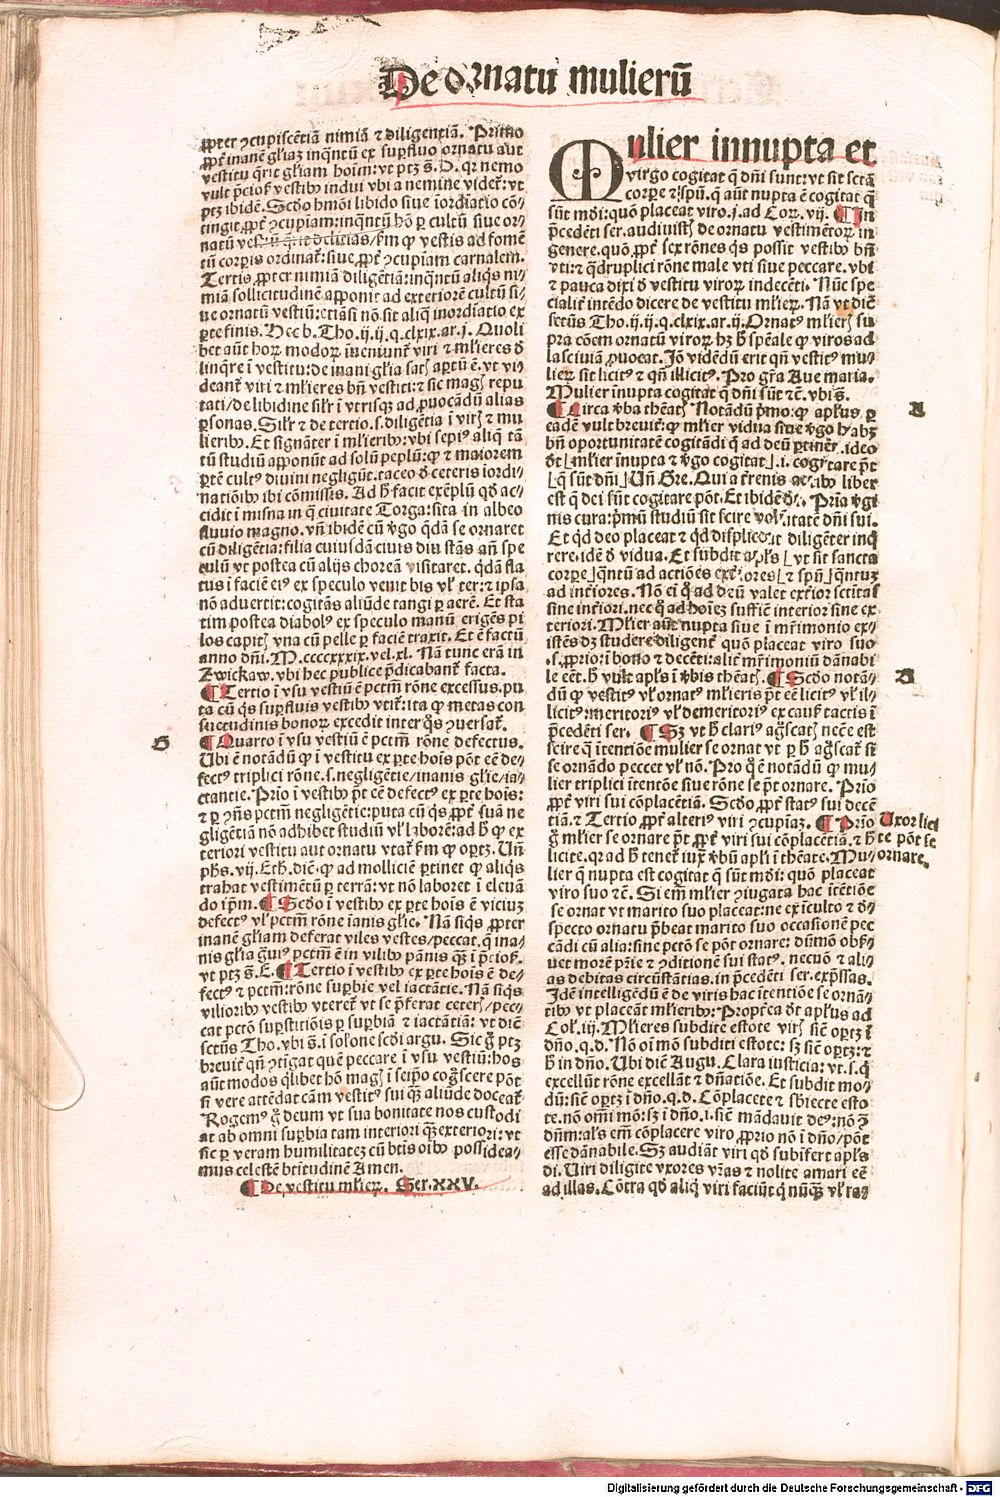 De ornatu mulierū
ꝓpter ꝯcupiscētiā nimiā ⁊ diligentiā. Primo
ꝓpt̄ inanē gl̓iaꝫ inqntū ex suꝑfluo ornatu aut
vestitu q̄rit gl̓iam hoīm: vt ptꝫ s̄. D. qꝛ nemo
ptꝫ ibidē. Scd̓o hmōi libido siue īordīatio cō⸗
tingit ꝓpt̄ ꝯcupīam: inqntū hō ꝑ cultū siue or⸗
natū vestiū q̄rit delicias/ẜm ꝙ vestis ad fomē
tū corꝑis ordinat̄: siue ꝓpt̄ ꝯcupīam carnalem.
Tertio ꝓpter nimiā diligētiā: inqntū aliqs ni⸗
miā sollicitudinē apponit ad exteriorē cultū si⸗
ue ornatū vestiū: etiāsi nō sit aliq̄ inordīatio ex
ꝑte finis. Hec b. Tho. ij. ij. q. clxix. ar. j. Quoli
bet aūt hoꝝ modoꝝ īueniunt̄ viri ⁊ ml̓ieres d̓
linq̄re ī vestitu: de inani gl̓ia satꝭ aꝑtū ē. vt vi⸗
deant̄ viri ⁊ ml̓ieres bn̄ vestiti: ⁊ sic magꝭ repu
tati/de libidine sil̓r ī vtrisqꝫ ad ꝓuocādū alias
ꝑsonas. Sil̓r ⁊ de tertio. s. diligētia ī virꝭ ⁊ mu
lieribꝰ. Et signāter ī ml̓ieribꝰ: vbi sepiꝰ aliq̄ tā
tū studiū apponūt ad solū peplū: ꝙ ⁊ maiorem
ꝑtē cultꝰ diuini negligūt. taceo d̓ ceteris īordi⸗
natiōibꝰ ibi cōmissis. Ad h̓ facit exēplū qd̓ ac⸗
cidit ī misna in q̄ ciuitate Torga: sita in albeo
fluuio magno. vn̄ ibidē cū v̓go q̄dā se ornaret
cū diligētia: filia cuiusdā ciuis diu stās an̄ spe
culū vt postea cū alijs choreā visitaret. qdā fla
tus ī faciē eiꝰ ex speculo venit bis vl̓ ter: ⁊ ipsa
nō aduertit: cogitās aliūde tangi ꝑ aerē. Et sta
tim postea diabolꝰ ex speculo manū erigēs pi
los capitꝭ vna cū pelle ꝑ faciē traxit. Et ē factū
anno dn̄i. M. ccccxxxix. vel. xl. Nā tūc erā in
Zwickaw. vbi hec publice p̄dicabant̄ facta.
¶ Tertio ī vsu vestiū ē pctm̄ rōne excessus. pu
ta cū qs suꝑfluis vestibꝰ vtit̄: ita ꝙ metas con
suetudinis bonoꝝ excedit inter q̄s ꝯuersat̄.
G
¶ Quarto ī vsu vestiū ē pctm̄ rōne defectus.
Ubi ē notādū ꝙ ī vestitu ex ꝑte hoīs pōt eē de⸗
fectꝰ triplici rōne. s. negligētie/inanis gl̓ie/ia⸗
ctantie. Prīo ī vestibꝰ pt̄ eē defectꝰ ex ꝑte hoīs:
⁊ ꝑ ꝯn̄s pctm̄ negligētie: puta cū qs ꝓpt̄ suā ne
gligētiā nō adhibet studiū vl̓ laborē: ad h̓ ꝙ ex
teriori vestitu aut ornatu vtat̄ ẜm ꝙ oꝑtꝫ. Un̄
ph̓s. vij. Eth. dic̄. ꝙ ad molliciē ꝑtinet ꝙ aliqs
trahat vestimētū ꝑ terrā: vt nō laboret ī eleuā
do ip̄m. ¶ Scd̓o ī vestibꝰ ex ꝑte hoīs ē viciuꝫ
defectꝰ vl̓ pctm̄ rōne īanis gl̓ie. Nā siqs ꝓpter
inanē gl̓iam deferat viles vestes/peccat. q̄ ina⸗
nis gl̓ia g̓uiꝰ pctm̄ ē in vilibꝰ pānis qꝫ ī p̄ciosꝭ.
vt ptꝫ s̄. E. ¶ Tertio ī vestibꝰ ex ꝑte hoīs ē de⸗
fectꝰ ⁊ pctm̄: rōne suꝑbie vel iactātie. Nā siqs
vilioribꝰ vestibꝰ vteret̄ vt se p̄ferat ceterꝭ/pec⸗
cat pctō suꝑstitiōis ꝑ suꝑbiā ⁊ iactātiā: vt dic̄
sctūs Tho. vbi s̄. ī sol̓one scd̓i argu. Sic g̊ ptꝫ
breuit̄ qn̄ ꝯtīgat quē peccare ī vsu vestiū: hos
aūt modos q̄libet hō magꝭ ī seip̄o cog̓scere pōt
si vere attēdat cām vestitꝰ sui qꝫ aliūde doceat̄.
Rogemꝰ g̊ deum vt sua bonitate nos custodi
at ab omni suꝑbia tam interiori qꝫ exteriori: vt
sic ꝑ veram humilitateꝫ cū bt̄is oībꝰ possidea⸗
mus celestē bt̄itudinē Amen.
¶ De vestitu ml̓ieꝝ. Ser. XXV.
Mulier innupta et
virgo cogitat q̄ dn̄i sunt: vt sit sctā
corꝑe ⁊ spū. q̄ aūt nupta ē cogitat q̄
sūt mūdi: quō placeat viro. j. ad Coꝝ. vij. ¶ In
p̄cedēti ser. audiuistꝭ de ornatu vestimētoꝝ in
genere. quō ꝓpt̄ sex rōnes qs possit vestibꝰ bn̄
vti: ⁊ q̄druplici rōne male vti siue peccare. vbi
⁊ pauca dixi d̓ vestitu viroꝝ indecēti. Nūc spe
cialit̄ intēdo dicere de vestitu ml̓ieꝝ. Nā vt dic̄
sctūs Tho. ij. ij. q. clxix. ar. ij. Ornatꝰ ml̓ierꝭ su
pra cōem ornatū viroꝝ hꝫ h̓ spēale ꝙ viros ad
lasciuiā ꝓuocat. Iō vidēdū erit qn̄ vestitꝰ mu⸗
lieꝝ sit licitꝰ ⁊ qn̄ illicitꝰ. Pro gr̄a Aue maria.
Mulier inupta cogitat q̄ dn̄i sūt ⁊c. vbi s̄.
A
¶ Circa v̓ba themꝭ Notādū p̓mo: ꝙ apl̓us ꝑ
eadē vult breuit̄: ꝙ ml̓ier vidua siue v̓go habꝫ
bn̄ oportunitatē cogitādi q̄ ad deū ꝑtinēt. ideo
d̓t ⌊ml̓ier inupta ⁊ v̓go cogitat⌋. i. cogitare pt̄
⌊q̄ sūt dn̄i⌋ Un̄ Gre. Qui a terenis actibꝰ liber
est q̄ dei sūt cogitare pōt. Et ibidē d̓r. Prīa v̓gi
nis cura: p̓mū studiū sit scire volūtatē dn̄i sui.
Et qd deo placeat ⁊ qd displiceat diligēter inq̄
rere. idē d̓ vidua. Et subdit apl̓s ⌊vt sit sancta
corꝑe⌋ qntū ad actiōes exteriores ⌊⁊ spū⌋ qntuꝫ
ad intīores. Nō ei̓ q̄ ad deū valet ext̄ior sctitas
sine int̄iori. nec q̄ ad hoīeꝫ suffic̄ interior sine ex
teriori. Ml̓ier aūt nupta siue ī mr̄imonio exi⸗
stēs dꝫ studere diligent̄ quō placeat viro suo
. s. ꝓprio: ī bono ⁊ decēti: alit̄ mr̄imoniū dānabi
B
le eēt. h̓ vult apl̓s ī v̓bis themꝭ. ¶ Scd̓o notā⸗
dū ꝙ vestitꝰ vl̓ ornatꝰ ml̓ieris pt̄ eē licitꝰ vl̓ il⸗
licitꝰ: meritoriꝰ vl̓ demeritoriꝰ ex causꝭ tactis ī
p̄cedēti ser. ¶ Sꝫ vt h̓ clariꝰ ag̓scatꝭ necē est
scire q̄ ītentiōe mulier se ornat vt ꝑ h̓ ag̓scat̄ si̓
se ornādo peccet vl̓ nō. Pro q̊ ē notādū ꝙ mu⸗
lier triplici ītentōe siue rōne se pt̄ ornare. Prīo
ꝓpt̄ viri sui cōplacētiā. Scd̓o ꝓpt̄ statꝰ sui decē
tiā. ⁊ Tertio ꝓpt̄ alteriꝰ viri ꝯcupīaꝫ. ¶ Prīo
Uxor lici
te pōt se
ornare.
g̊ ml̓ier se ornare pt̄ ꝓpt̄ viri sui cōplacētiā. ⁊ h̓
licite. qꝛ ad h̓ tenet̄ iux̄ v̓bū apl̓i ī themate. Mu⸗
lier q̄ nupta est cogitat q̄ sūt mūdi: quō placeat
viro suo ⁊c. Si em̄ ml̓ier ꝯiugata hac ītētiōe
se ornat vt marito suo placeat: ne ex īcultu ⁊ d̓⸗
specto ornatu p̄beat marito suo occasionē pec
cādi cū alia: sine pctō se pōt ornare: dūmō obẜ⸗
uet morē pr̄ie ⁊ ꝯditionē sui statꝰ. necnō ⁊ ali⸗
as debitas circūstātias. in p̄cedēti ser. exp̄ssas.
Idē intelligēdū ē de viris hac ītentiōe se ornā⸗
tibꝰ vt placeāt ml̓ieribꝰ. Propt̄ea d̓t apl̓us ad
Col. iij. Ml̓ieres subdite estote virꝭ sic̄ oꝑtꝫ ī
dn̄o. q. d. Nō oī mō subditi estote: sꝫ sic̄ oꝑtꝫ: ⁊
h̓ in dn̄o. Ubi dic̄ Augu. Clara iusticia: vt. s. q̄
excellūt rōne excellāt ⁊ dn̄atiōe. Et subdit mo⸗
dū: sic̄ oꝑtꝫ ī dn̄o. q. d. Cōplacete ⁊ sb̓iecte esto
te. nō omī mō: sꝫ ī dn̄o. i. sic̄ mādauit deꝰ: nō ꝯ̄
dn̄m: al̓s em̄ cōplacere viro ꝓprio nō ī dn̄o/pōt
esse dānabile. Sꝫ audiāt viri qd̓ subīfert apl̓s
di. Uiri diligite vxores vr̄as ⁊ nolite amari eē
ad illas. Cōtra qd̓ aliq̄ viri faciūt q̄ nūqꝫ vl̓ ra⸗
Digitalisierung gefördert durch die Deutsche Forschungsgemeinschaft - DFG